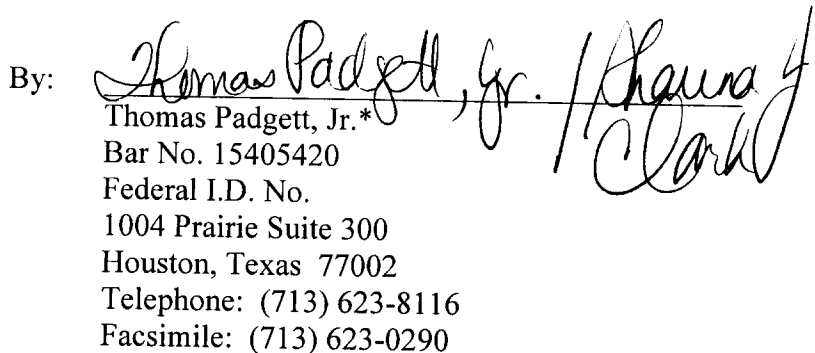 By: Thomas Padgett, Jr. / Shauna J
Clark
Thomas Padgett, Jr.*
Bar No. 15405420
Federal I.D. No.
1004 Prairie Suite 300
Houston, Texas 77002
Telephone: (713) 623-8116
Facsimile: (713) 623-0290